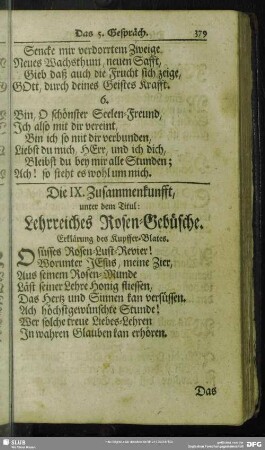 Das 5. Gespräch. 379
Sencke mir verdorrtem Zweige.
Neues Wachsthum, neuen Safft,
Gieb daß auch die Frucht sich zeige,
GOtt, durch deines Geistes Krafft.
6.
Bin, O schönster Seelen-Freund,
Ich also mit dir vereint,
Bin ich so mit dir verbunden,
Liebst du mich, HErr, und ich dich,
Bleibst du bey mir alle Stunden;
Ach! so stehet es wohl um mich.
Die IX. Zusammenkunfft,
unter dem Titul:
Lehrreiches Rosen-Gebüsche.
Erklärung des Kupffer-Blates.
O süsses Rosen-Lust-Revier!
Worunter JEsus, meine Zier,
Aus seinem Rosen-Munde
Läst seiner Lehre Honig fliessen,
Das Hertz und Sinnen kan versüssen.
Ach höchstgewünschte Stunde!
Wer solche treue Liebes-Lehren
In wahren Glauben kan erhören.
Das
SLUB